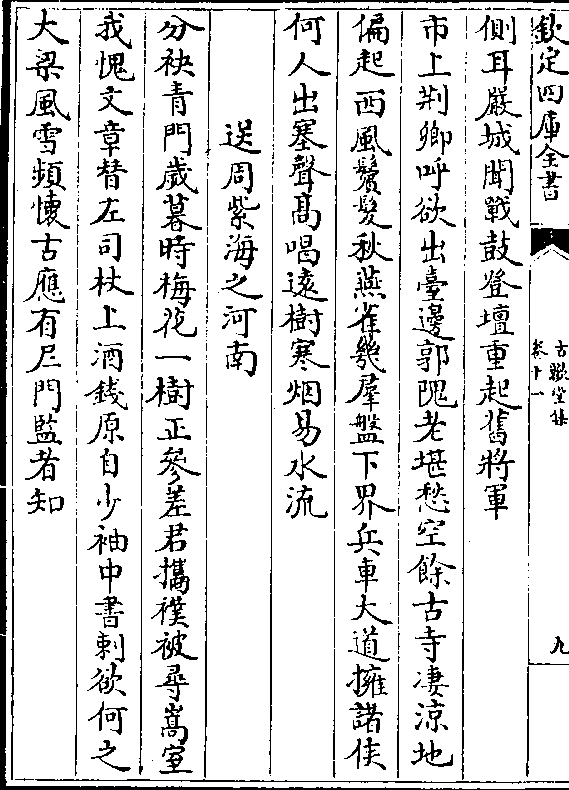 欽定四庫全書
古歡堂集
卷十一
九
側耳嚴城聞戰鼓登壇重起舊將軍
市上荆卿呼欲出臺邊郭隗老堪愁空餘古寺凄涼地
偏起西風鬢髮秋燕雀幾羣盤下界兵車大道擁諸侯
何人出塞聲髙唱逺樹寒烟易水流
送周紫海之河南
分袂青門歲暮時梅花一樹正參差君攜襆被尋嵩室
我愧文章替左司杖上酒錢原自少袖中書剌欲何之
大梁風雪頻懐古應有尼門監者知